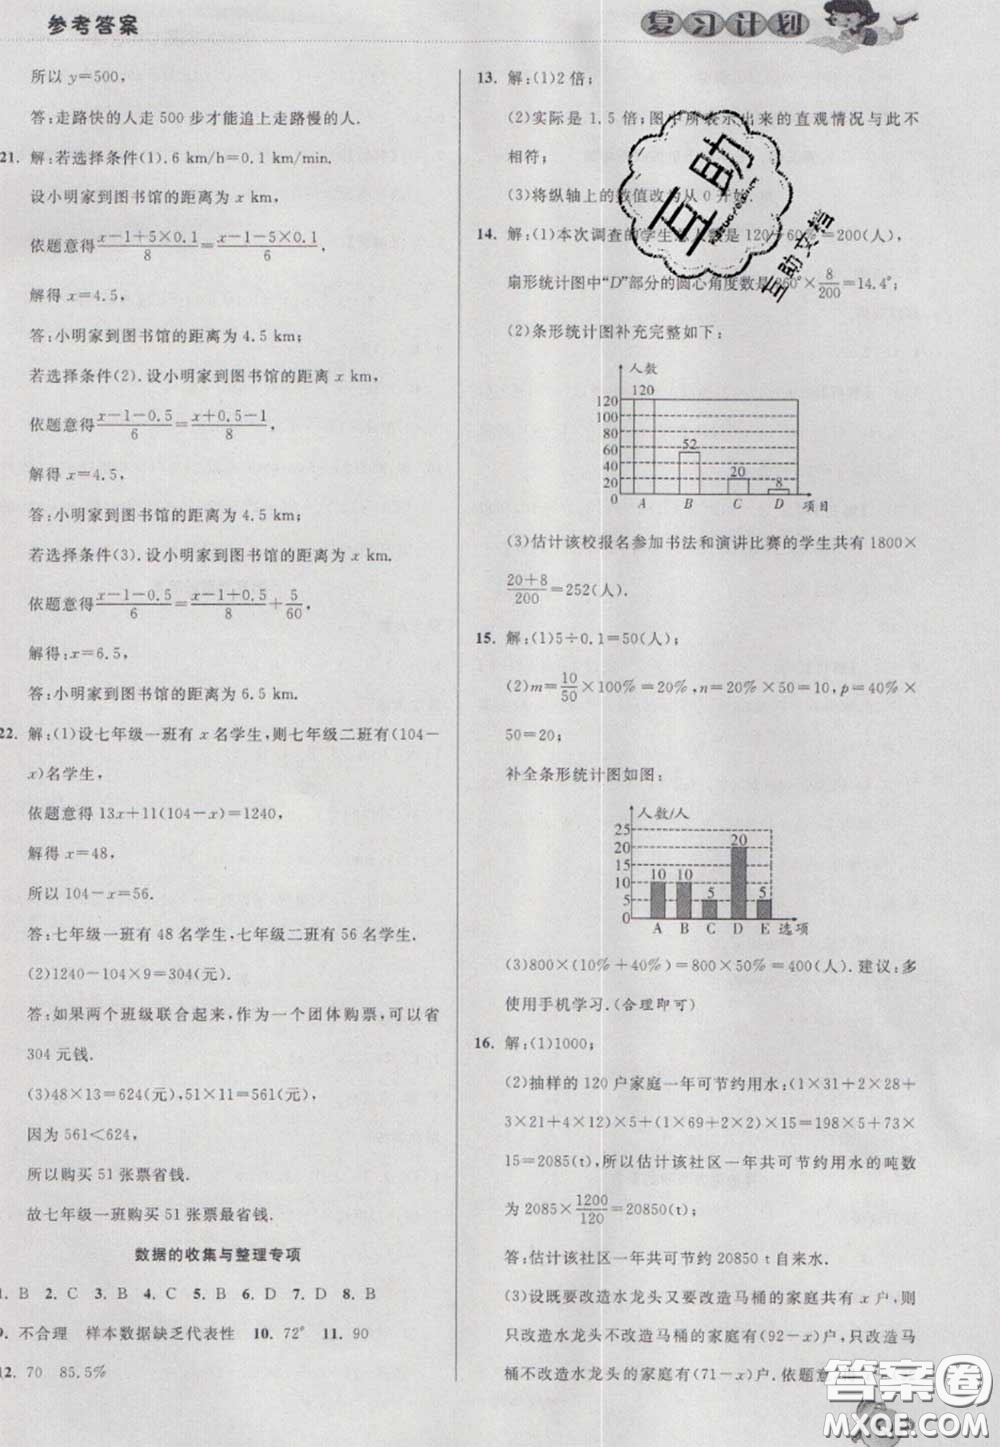 参考答案
复习计划
所以 y=500,
答:走路快的人走 500 步才能追上走路慢的人.
21. 解:若选择条件(1).6 km/h=0.1 km/min.
设小明家到图书馆的距离为 x km,
依题意得(x-1+5×0.1)/8=(x-1-5×0.1)/6,
解得 x=4.5,
答:小明家到图书馆的距离为 4.5 km.
若选择条件(2).设小明家到图书馆的距离 x km,
依题意得(x-1-0.5)/6=(x+0.5-1)/8,
解得 x=4.5,
答:小明家到图书馆的距离为 4.5 km.
若选择条件(3).设小明家到图书馆的距离为 x km.
依题意得(x-1-0.5)/6=(x-1+0.5)/8+5/60,
解得:x=6.5,
答:小明家到图书馆的距离为 6.5 km.
22. 解:(1)设七年级一班有 x 名学生,则七年级二班有(104-
x)名学生,
依题意得 13x+11(104-x)=1240,
解得 x=48,
所以 104-x=56.
答:七年级一班有 48 名学生,七年级二班有 56 名学生.
(2)1240-104×9=304(元).
答:如果两个班级联合起来,作为一个团体购票,可以省
304 元钱.
(3)48×13=624(元),51×11=561(元),
因为 561<624,
所以购买 51 张票省钱.
故七年级一班购买 51 张票最省钱.
数据的收集与整理专项
1. B 2. C 3. B 4. C 5. B 6. D 7. D 8. B
9. 不合理 样本数据缺乏代表性 10. 72° 11. 90
12. 70 85.5%
13. 解:(1)2 倍;
(2)实际是 1.5 倍;图中所表示出来的直观情况与此不
相符;
(3)将纵轴上的数值改为从 0 开始.
14. 解:(1)本次调查的学生总人数是 120÷60%=200(人),
扇形统计图中“D”部分的圆心角度数是 360°×8/200=14.4°;
(2)条形统计图补充完整如下:
人数
120
120
100
80
60
40
20
0
52
20
8
A B C D 项目
(3)估计该校报名参加书法和演讲比赛的学生共有 1800×
(20+8)/200=252(人).
15. 解:(1)5÷0.1=50(人);
(2)m=10/50×100%=20%,n=20%×50=10,p=40%×
50=20;
补全条形统计图如图:
人数/人
25
20
15
10
5
0
10 10 5 20 5
A B C D E 选项
(3)800×(10%+40%)=800×50%=400(人).建议:多
使用手机学习.(合理即可)
16. 解:(1)1000;
(2)抽样的 120 户家庭一年可节约用水:(1×31+2×28+
3×21+4×12)×5+(1×69+2×2)×15=198×5+73×
15=2085(t),所以估计该社区一年共可节约用水的吨数
为 2085×1200/120=20850(t);
答:估计该社区一年共可节约 20850 t自来水.
(3)设既要改造水龙头又要改造马桶的家庭共有 x 户,则
只改造水龙头不改造马桶的家庭有(92-x)户,只改造马
桶不改造水龙头的家庭有(71-x)户.依题意
互助
互助文档
答案圈
MXQE.COM